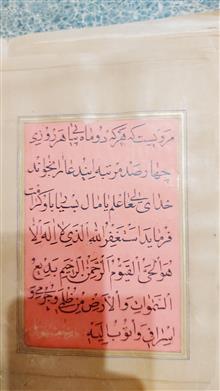 مرویست که هر که دو ماه پی پی هر روزی
چهار صد مرتبه این دعا را بخواند
خدای تعالی یا مال بسیار یا برکات
فرماید استغفر الله الذی لا اله الا
هو الحی القیوم الرحمن الرحیم بدیع
السموات والارض من ظلمی و جرمی و
اسرافی و اتوب الیه